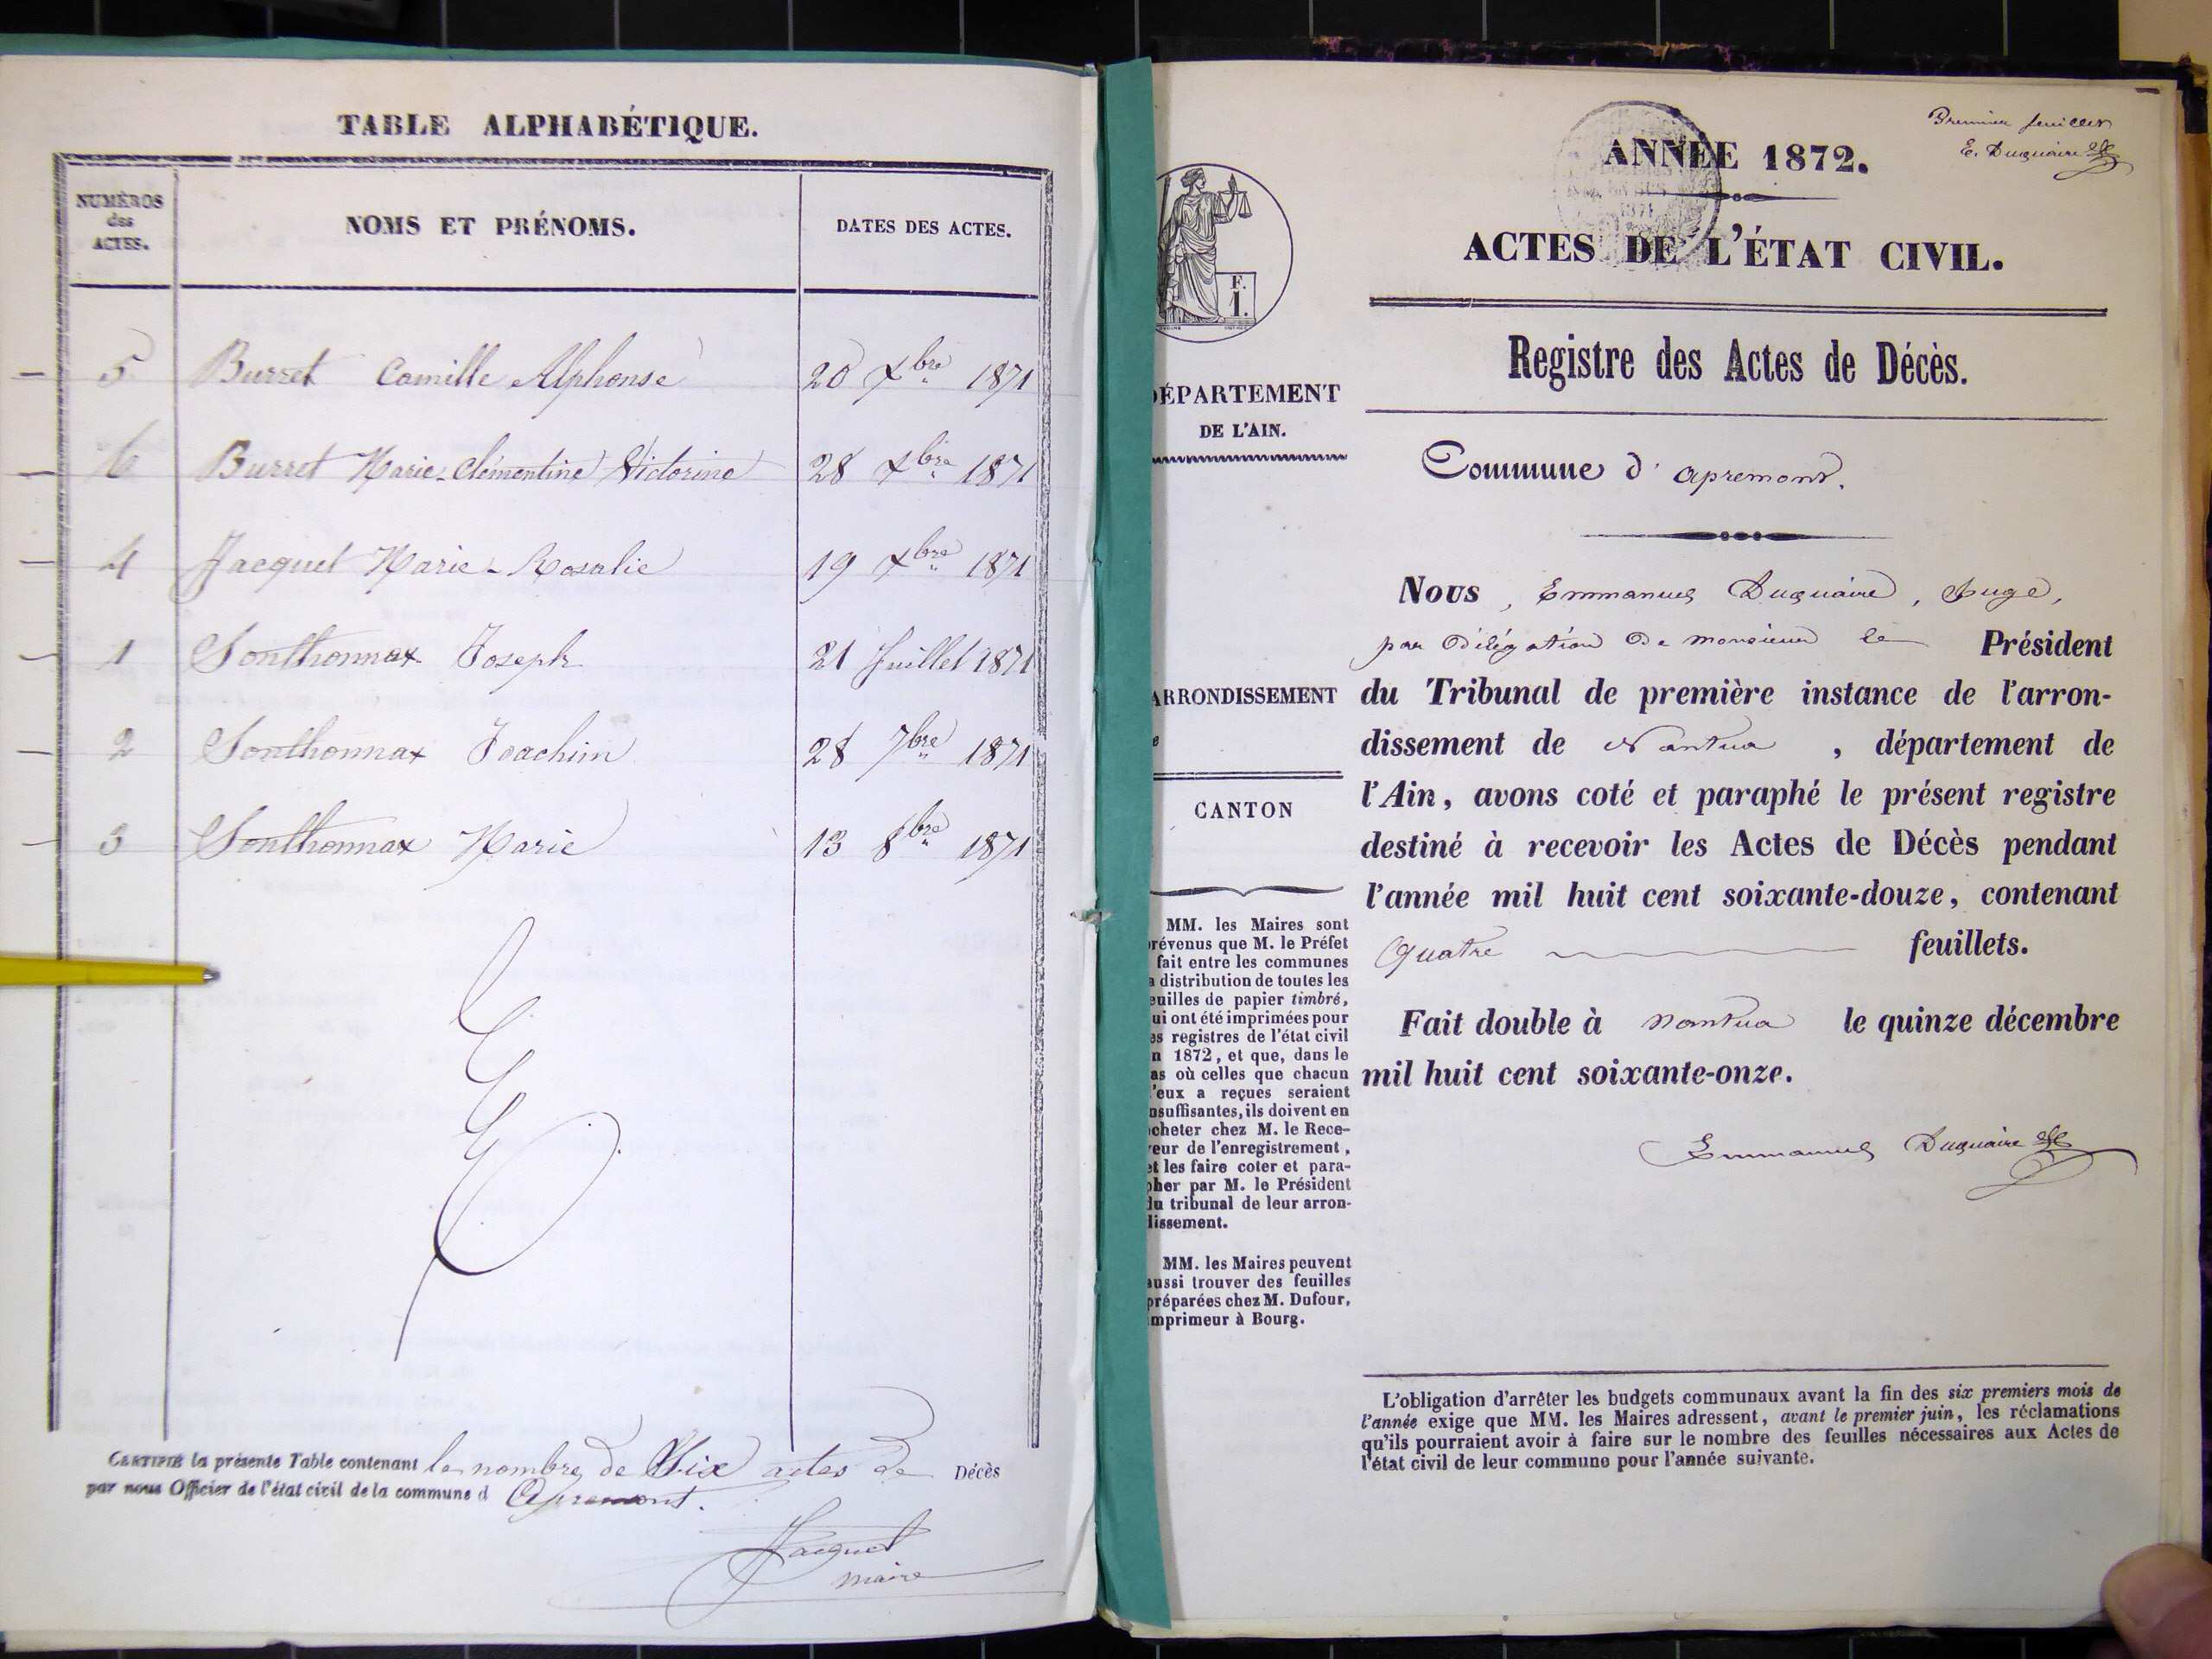 TABLE ALPHABÉTIQUE.
NUMÉROS
des
ACTES.
NOMS ET PRÉNOMS.
DATES DES ACTES.
5 Burret Camille Alphonse 20 Xbre 1871
6 Burret Marie-Clémentine Victorine 28 Xbre 1871
4 Jacquet Marie-Rosalie 19 Xbre 1871
1 Sonthonnax Joseph 21 Juillet 1871
2 Sonthonnax Joachim 28 7bre 1871
3 Sonthonnax Marie 13 8bre 1871
CERTIFIÉ la présente Table contenant le nombre de Six actes de Décès
par nous Officier de l'état civil de la commune d Apremont.
Jacquet
maire
Premier feuillet
E. Duquaire
ANNÉE 1872.
ACTES DE L'ÉTAT CIVIL.
F.
1.
Registre des Actes de Décès.
DÉPARTEMENT
DE L'AIN.
Commune d' apremont.
Nous, Emmanuel Duquaire, Juge,
par délégation de monsieur le Président
ARRONDISSEMENT
du Tribunal de première instance de l'arron-
dissement de Nantua, département de
l'Ain, avons coté et paraphé le présent registre
destiné à recevoir les Actes de Décès pendant
l'année mil huit cent soixante-douze, contenant
quatre feuillets.
Fait double à nantua le quinze décembre
mil huit cent soixante-onze.
Emmanuel Duquaire
CANTON
MM. les Maires sont
révenus que M. le Préfet
fait entre les communes
a distribution de toutes les
euilles de papier timbré,
ui ont été imprimées pour
es registres de l'état civil
n 1872, et que, dans le
as où celles que chacun
'eux a reçues seraient
nsuffisantes, ils doivent en
cheter chez M. le Rece-
eur de l'enregistrement,
et les faire coter et para-
pher par M. le Président
du tribunal de leur arron-
dissement.
MM. les Maires peuvent
aussi trouver des feuilles
préparées chez M. Dufour,
imprimeur à Bourg.
L'obligation d'arrêter les budgets communaux avant la fin des six premiers mois de
l'année exige que MM. les Maires adressent, avant le premier juin, les réclamations
qu'ils pourraient avoir à faire sur le nombre des feuilles nécessaires aux Actes de
l'état civil de leur commune pour l'année suivante.